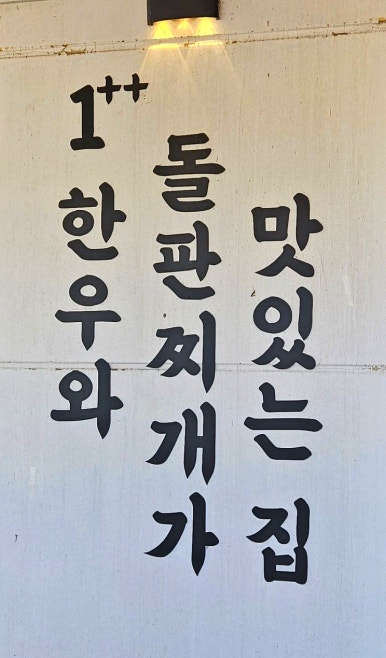 1++ 한우와
돌판찌개가
맛있는 집